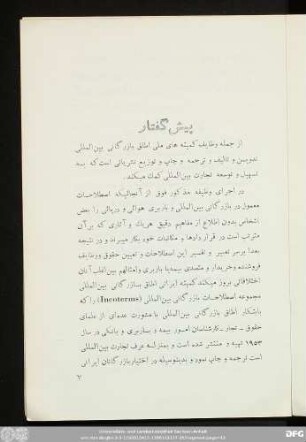 پیش گفتار
از جمله وظایف کمیته های ملی اطاق بازرگانی بین‌المللی
تدوین و تألیف و ترجمه و چاپ و توزیع نشریاتی است که به
تسهیل و توسعه تجارت بین‌المللی کمک میکند.
در اجرای وظیفه مذکور فوق از آنجائیکه اصطلاحات
معمول در بازرگانی بین‌المللی و باربری هوائی و دریائی را بعض
اشخاص بدون اطلاع از مفاهیم دقیق هریک و آثاری که بر آن
مترتب است در قراردادها و مکاتبات خود بکار میبرند و در نتیجه
بعداً بر سر تعبیر و تفسیر این اصطلاحات و تعیین حقوق و وظایف
فروشنده و خریدار و متصدی بیمه یا باربری و امثالهم بین آنان
اختلافاتی بروز میکند کمیته ایرانی اطاق بازرگانی بین‌المللی
مجموعه اصطلاحات بازرگانی بین‌المللی (Incoterms) را که
بابتکار اطاق بازرگانی بین‌المللی با مشورت عده‌ای از علمای
حقوق ـ تجار ـ کارشناسان امور بیمه و باربری و بانکی در سال
۱۹۵۳ تهیه و منتشر شده است و بمنزله عرف تجارت بین‌المللی
است ترجمه و چاپ نمود و بدینوسیله در اختیار بازرگانان ایرانی
۷